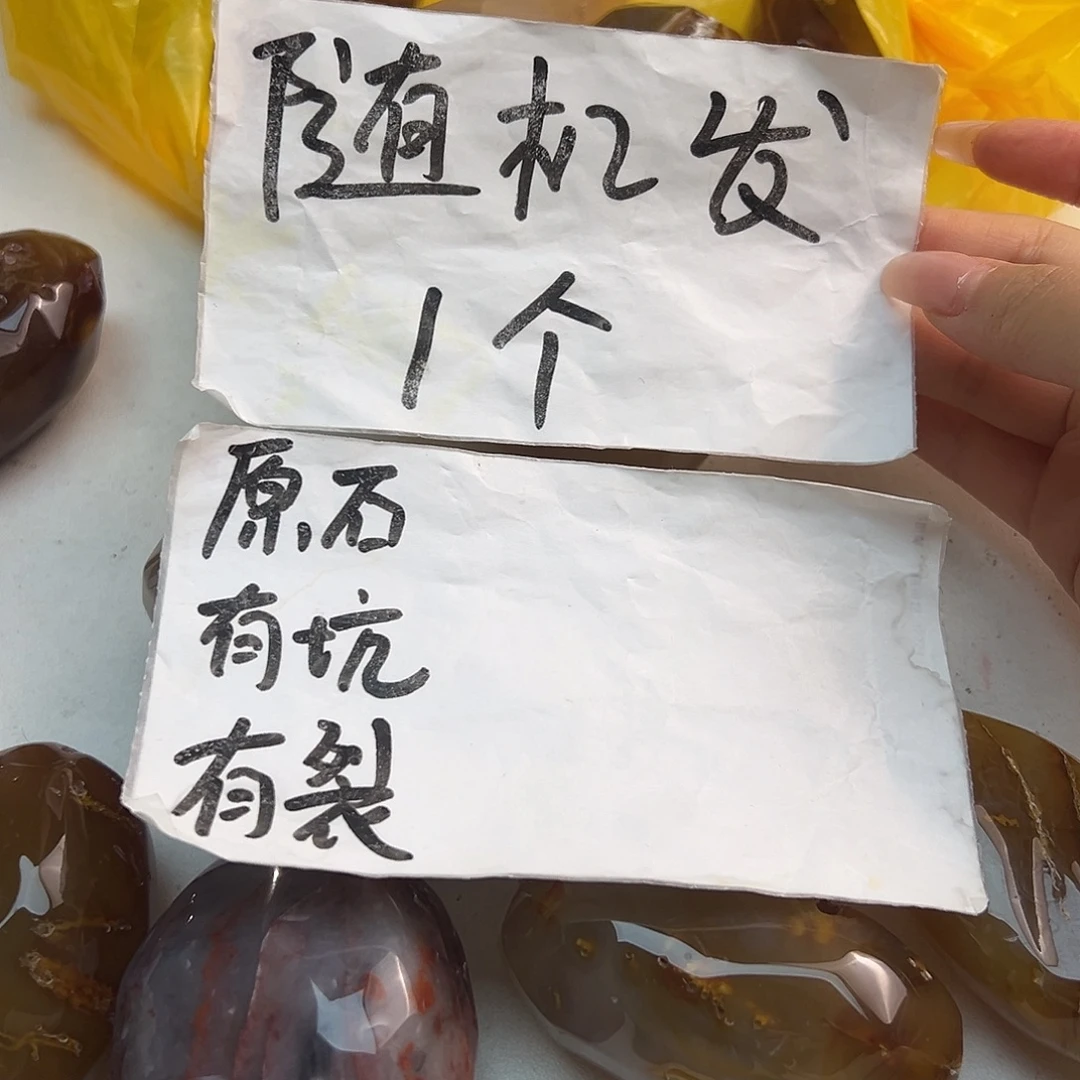 随机发
1个
原石
有坑
有裂